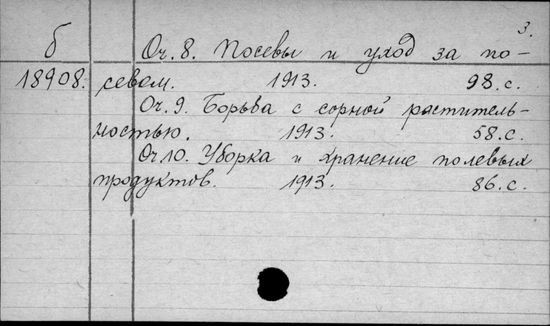 3.
б Оч. 8. Посевы и уход за по-
18908. севом. 1913. 98. с.
Оч. 9. Борьба с сорной раститель-
ностью. 1913. 58. с.
Оч. 10. Уборка и хранение полевых
продуктов. 1913. 86. с.